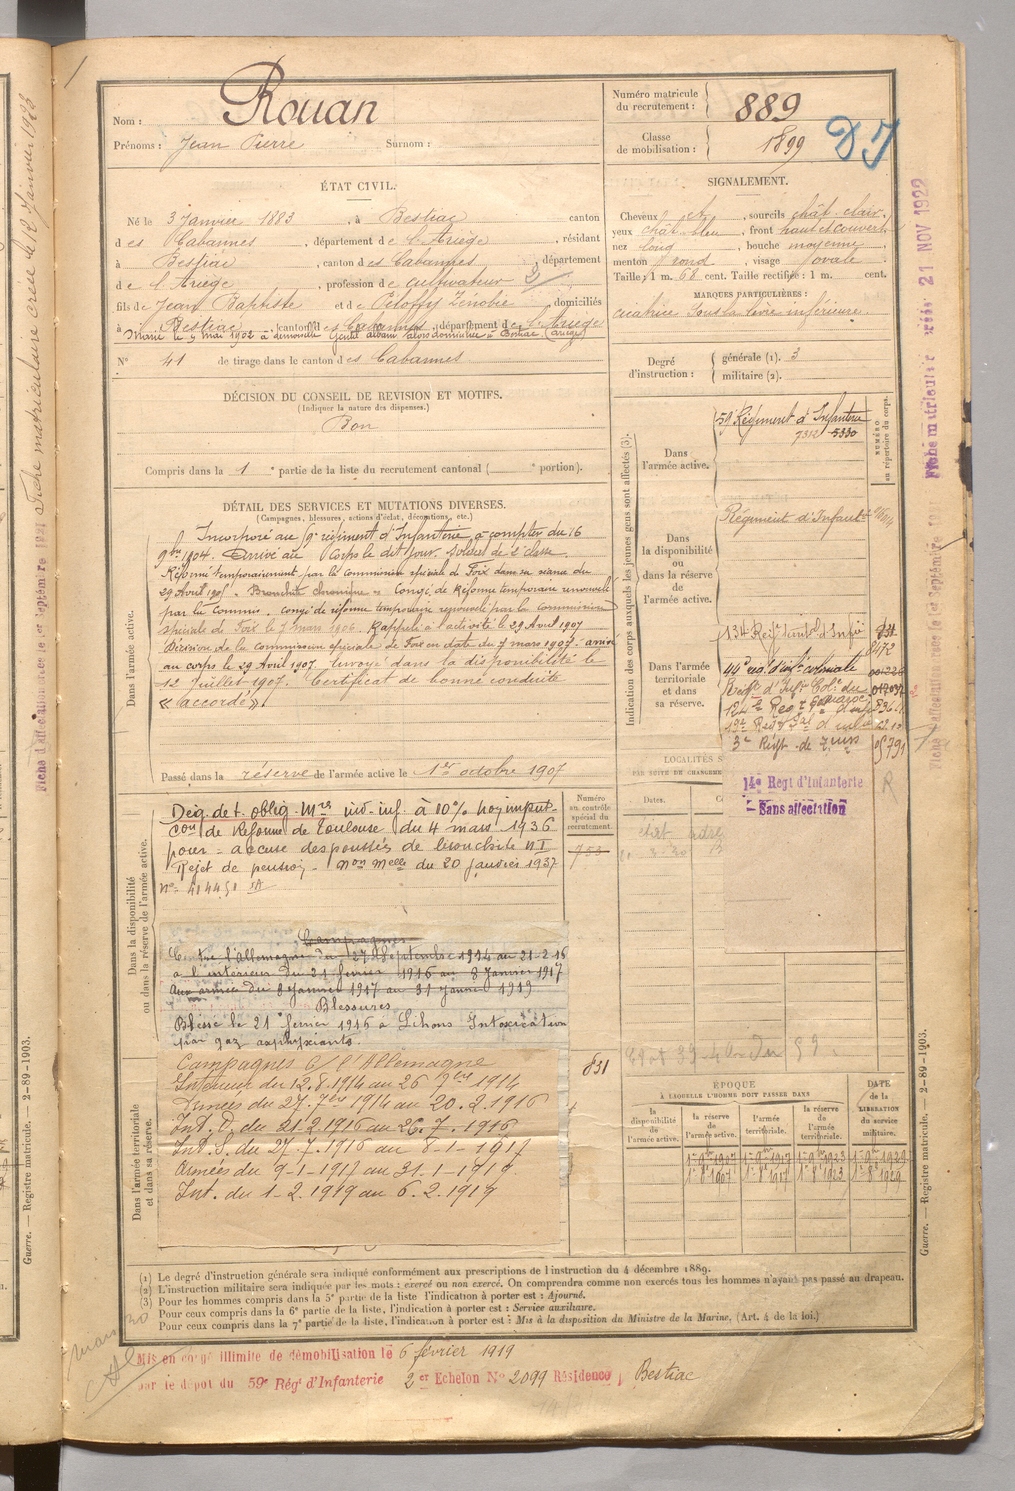 Nom : Rouan
Prénoms : Jean Pierre Surnom :
Numéro matricule du recrutement : 889
Classe de mobilisation : 1899
DJ
ÉTAT CIVIL.
Né le 3 Janvier 1883, à Bestiac canton
des Cabannes, département de l'Ariège, résidant
à Bestiac, canton des Cabannes, département
de l'Ariège, profession de cultivateur
fils de Jean Baptiste et de Piloffy Zénobie, domiciliés
à Bestiac, canton des Cabannes, département de l'Ariège
Marié le 9 mai 1902 à demoiselle Gentil alors domiciliée à Bestiac (Ariège)
N° 41 de tirage dans le canton des Cabannes
SIGNALEMENT.
Cheveux et, sourcils chât. clair,
yeux chât. bleu, front haut et couvert
nez long, bouche moyenne
menton rond, visage ovale
Taille : 1 m. 68 cent. Taille rectifiée : 1 m. cent.
MARQUES PARTICULIÈRES :
cicatrice sous la lèvre inférieure
Degré d'instruction : générale (1). 3
militaire (2).
DÉCISION DU CONSEIL DE REVISION ET MOTIFS.
(Indiquer la nature des dispenses.)
Bon
Compris dans la 1e partie de la liste du recrutement cantonal ( e portion).
DÉTAIL DES SERVICES ET MUTATIONS DIVERSES.
(Campagnes, blessures, actions d'éclat, décorations, etc.)
Dans l'armée active.
Incorporé au 59e régiment d'Infanterie à compter du 16
9bre 1904. Arrivé au Corps le dit jour. Soldat de 2e classe.
Réformé temporairement par la commission spéciale de Foix dans sa séance du
29 Août 1905. Bronchite chronique. Congé de Réforme temporaire renouvelé
par la Commis. Congé de réforme temporaire renouvelé par la commission
spéciale de Foix le 7 mars 1906. Rappelé à l'activité le 29 Août 1907
Décision de la commission spéciale de Foix en date du 7 mars 1907. arrivé
au corps le 29 Août 1907. Envoyé dans la disponibilité le
12 Juillet 1907. Certificat de bonne conduite
« accordé ».
Passé dans la réserve de l'armée active le 1er octobre 1907
Indication des corps auxquels les jeunes gens sont affectés (3).
NUMÉRO au répertoire du corps.
Dans l'armée active.
59 Régiment d'Infanterie
7312 5330
Dans la disponibilité ou dans la réserve de l'armée active.
Régiment d'Infant
Dans l'armée territoriale et dans sa réserve.
134 Reg territ d'Infie
44e rég. d'inf. coloniale
Rég. d'Infie Col. du Maroc
3e Régt de Zuaves
LOCALITÉS S
PAR SUITE DE CHANGEME
Dates.
14e Régt d'Infanterie
Sans affectation
R
Dans la disponibilité ou dans la réserve de l'armée active.
Deg. de t. oblig. Mres inv. inf. à 10% non imput.
con de Réforme de Toulouse du 4 mars 1936
pour – accuse des poussées de bronchite NI
Rejet de pension – Mon Melle du 20 janvier 1937
Numéro au contrôle spécial du recrutement.
753
Campagnes
Contre l'Allemagne du 27 Septembre 1914 au 21-2-16
à l'intérieur du 21 février 1916 au 8 Janvier 1917
Aux armées du 8 Janvier 1917 au 31 Janvier 1919
Blessures
Blessé le 21 février 1916 à Lihons Intoxication
par gaz asphyxiants.
Dans l'armée territoriale et dans sa réserve.
Campagnes C/ l'Allemagne
Intérieur du 12.8.1914 au 26 7bre 1914
Armées du 27.7bre 1914 au 20.2.1916
Int. C. du 21.2.1916 au 26.7.1916
Int. S. du 27.7.1916 au 8-1-1917
Armées du 9-1-1917 au 31.1.1919
Int. du 1-2.1919 au 6.2.1919
831
ÉPOQUE
À LAQUELLE L'HOMME DOIT PASSER DANS
la disponibilité de l'armée active.
la réserve de l'armée active.
l'armée territoriale.
la réserve de l'armée territoriale.
DATE de la LIBÉRATION du service militaire.
1er 8bre 1907 1er 8bre 1917 1er 8bre 1923 1er 8bre 1929
(1) Le degré d'instruction générale sera indiqué conformément aux prescriptions de l'instruction du 4 décembre 1889.
(2) L'instruction militaire sera indiquée par les mots : exercé ou non exercé. On comprendra comme non exercés tous les hommes n'ayant pas passé au drapeau.
(3) Pour les hommes compris dans la 5e partie de la liste l'indication à porter est : Ajourné.
Pour ceux compris dans la 6e partie de la liste, l'indication à porter est : Service auxiliaire.
Pour ceux compris dans la 7e partie de la liste, l'indication à porter est : Mis à la disposition du Ministre de la Marine. (Art. 4 de la loi.)
Mis en congé illimité de démobilisation le 6 février 1919
par le dépôt du 59e Régt d'Infanterie 2er Echelon N° 2099 Résidence Bestiac
mars 30
Guerre. — Registre matricule. — 2-89-1903.
Guerre. — Registre matricule. — 2-89-1903.
Fiche matriculaire créée le 12 Janvier 1923
Fiche matriculaire créée 21 NOV 1922